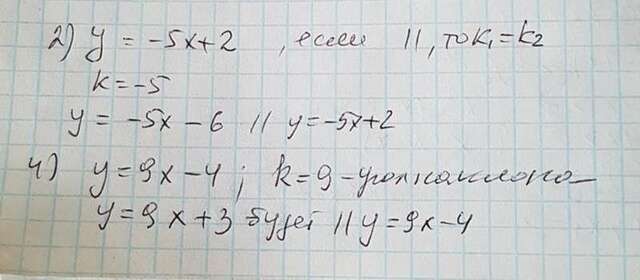 2) y = -5x+2 , если ||, то k₁=k₂
k=-5
y = -5x - 6 || y=-5x+2
4) y=9x-4; k=9 - угол наклона
y=9x+3 будет || y=9x-4